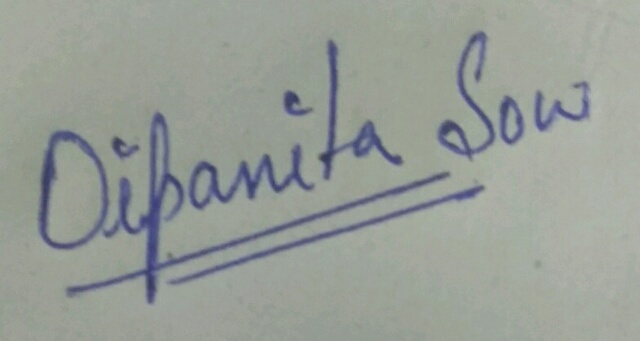 Dipanita Sow